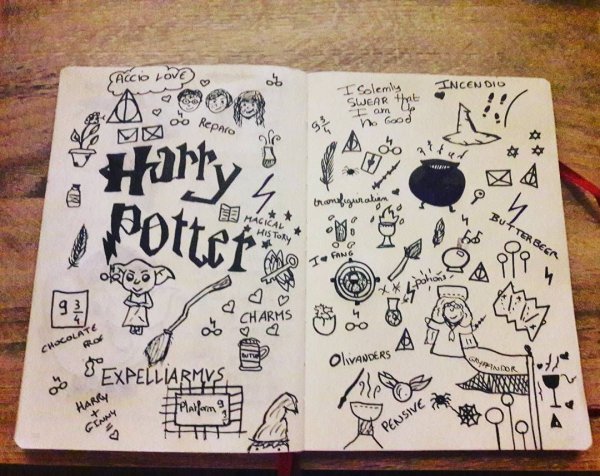 ACCIO LOVE
REPARO
Harry
Potter
MAGICAL
HISTORY
9 3/4
CHOCOLATE
CHARMS
BUTTER
EXPELLIARMVS
HARRY
+
GINNY
=
Platform 9 3/4
I Solemly
SWEAR that
I am Up
to No Good
INCENDIO
9 3/4
transfiguration
BUTTERBEER
I ♥ FANG
Potions
OLIVANDERS
GRYFFINDOR
PENSIVE